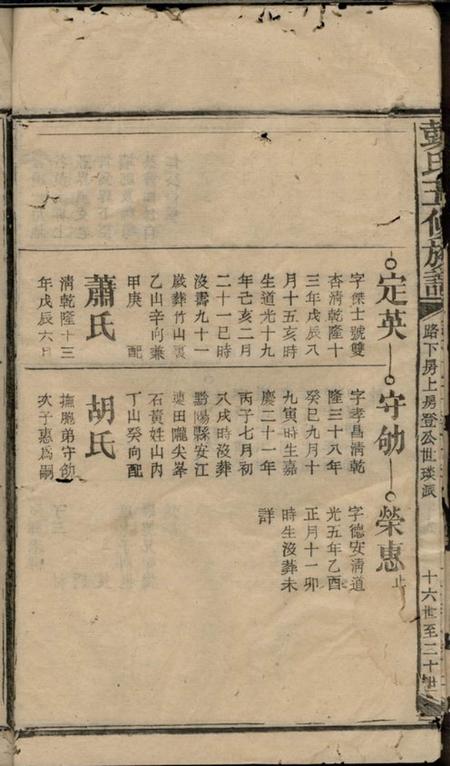 氏五修族譜
路下房上房登公世璞派
十六世至二十世
定英
字傑士號雙
杏清乾隆十
三年戊辰八
月十五亥時
生道光十九
年己亥二月
二十一巳時
沒壽九十一
歲葬竹山裏
乙山辛向兼
甲庚 配
蕭氏
清乾隆十三
年戊辰六月
守劬
字孝昌清乾
隆三十八年
癸巳九月十
九寅時生嘉
慶二十一年
丙子七月初
八戌時沒葬
黔陽縣安江
速田隴尖峯
石黃姓山內
丁山癸向配
胡氏
撫胞弟守劬
次子惠爲嗣
榮惠 止
字德安清道
光五年乙酉
正月十一卯
時生沒葬未
詳